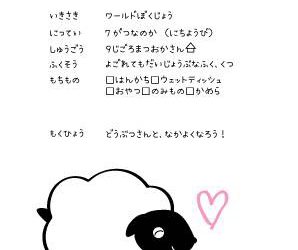 いきさき ワールドぼくじょう
にってい 7がつなのか (にちようび)
しゅうごう 9じごろまつおかさん
ふくそう よごれてもだいじょうぶなふく、くつ
もちもの □はんかち□ウェットティッシュ
□おやつ□のみもの□かめら
もくひょう どうぶつさんと、なかよくなろう!